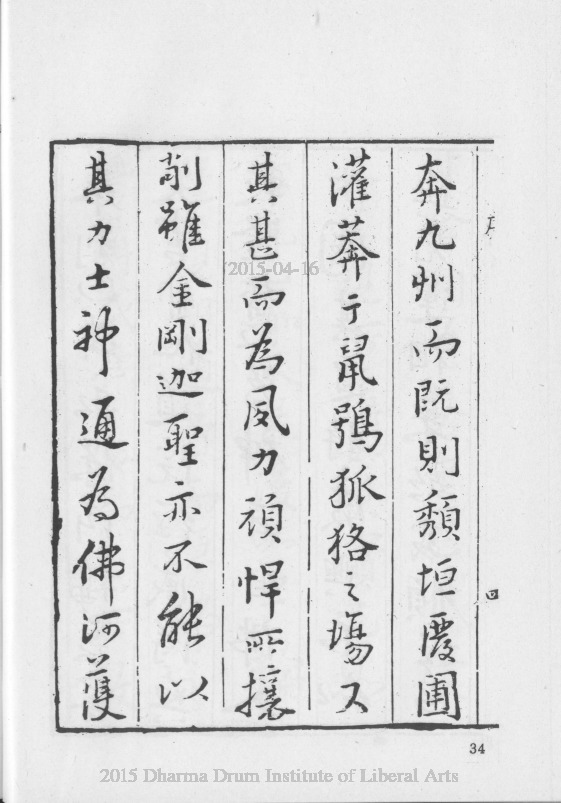 奔九州而既則頹垣廢圃
灌莽于鼠鴞狐狢之場又
其甚而為風力頑悍所攘
剒雖金剛迦聖亦不能以
其力士神通為佛訶護
四
34
2015-04-16
2015 Dharma Drum Institute of Liberal Arts